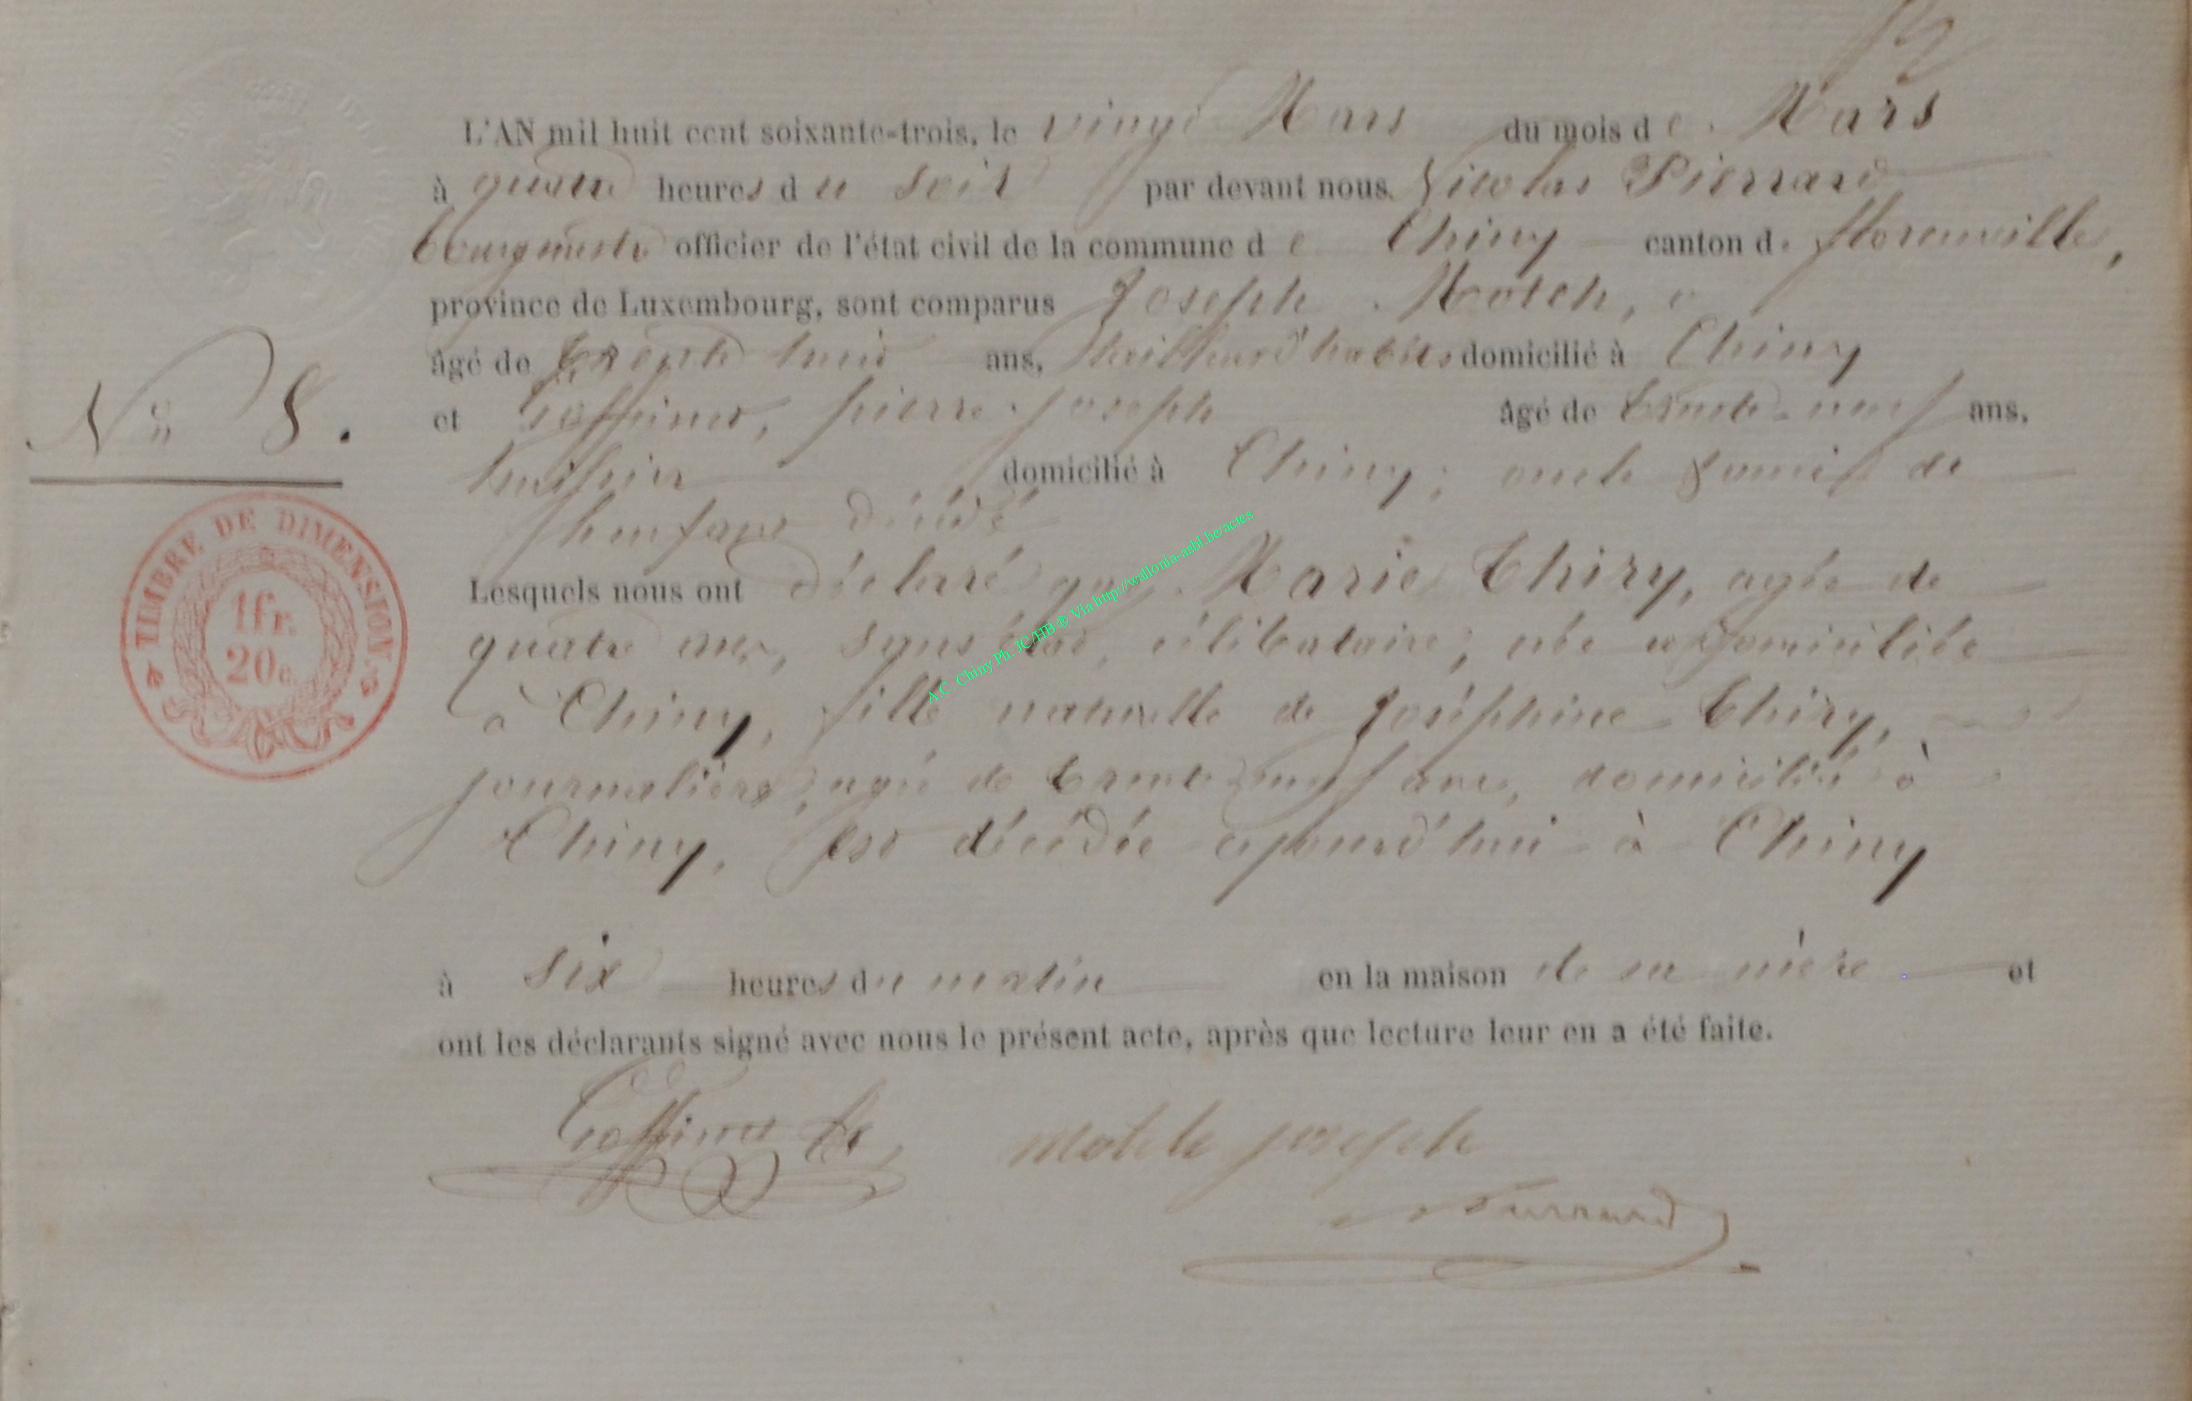 L'AN mil huit cent soixante-trois, le vingt Mars du mois de Mars
à quatre heures du soir par devant nous Nicolas Pierrard
bourgmestre officier de l'état civil de la commune de Chiny canton de florenville,
province de Luxembourg, sont comparus Joseph Motch,
âgé de trente huit ans, tailleur d'habits domicilié à Chiny
et Goffinet, pierre joseph âgé de trente-neuf ans,
N° 8.
huissier domicilié à Chiny; oncle &amp; ami de
l'enfant décédé
TIMBRE DE DIMENSION
1fr.
20c.
Lesquels nous ont déclaré que Marie Thiry, agée de
quatre ans, sans état, célibataire, née et domiciliée
à Chiny, fille naturelle de Joséphine Thiry,
journalière, agée de trente neuf ans, domiciliée à
Chiny, est décédée ajourd'hui à Chiny
à six heures du matin en la maison de sa mère et
ont les déclarants signé avec nous le présent acte, après que lecture leur en a été faite.
Goffinet motch joseph
Pierrard
A.C. Chiny Ph. JC/HB @ Via http://wallonia-asbl.be/actes